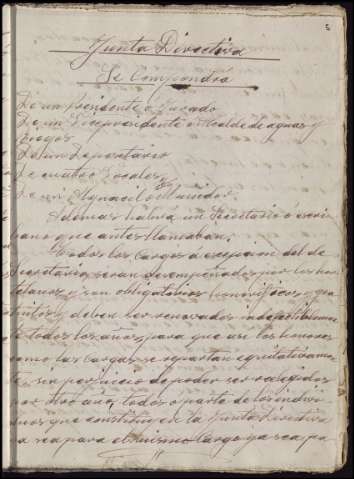 Junta Directiva
Se Compondrá
De un Presidente o Jurado
De un Vicepresidente o Alcalde de aguas y
Riegos
De un Depositario
De cuatro Vocales
De un Alguacil o
Ademas habra un Secretario o escri
bano que antes llamaban.
Todos los cargos a excepcion del de
Secretario seran desempeñados por los hor
telanos y son obligatorios honorificos y gra
tuitos y deben ser renovados indefectibleme
te todos los años para que asi los honores
como las cargas se repartan equitativame
te, sin perjuicio de poder ser reelegidos
por otro año, todos o parte de los indivi
duos que constituyen la Junta Directiva
ya sea para el mismo cargo ya sea pa